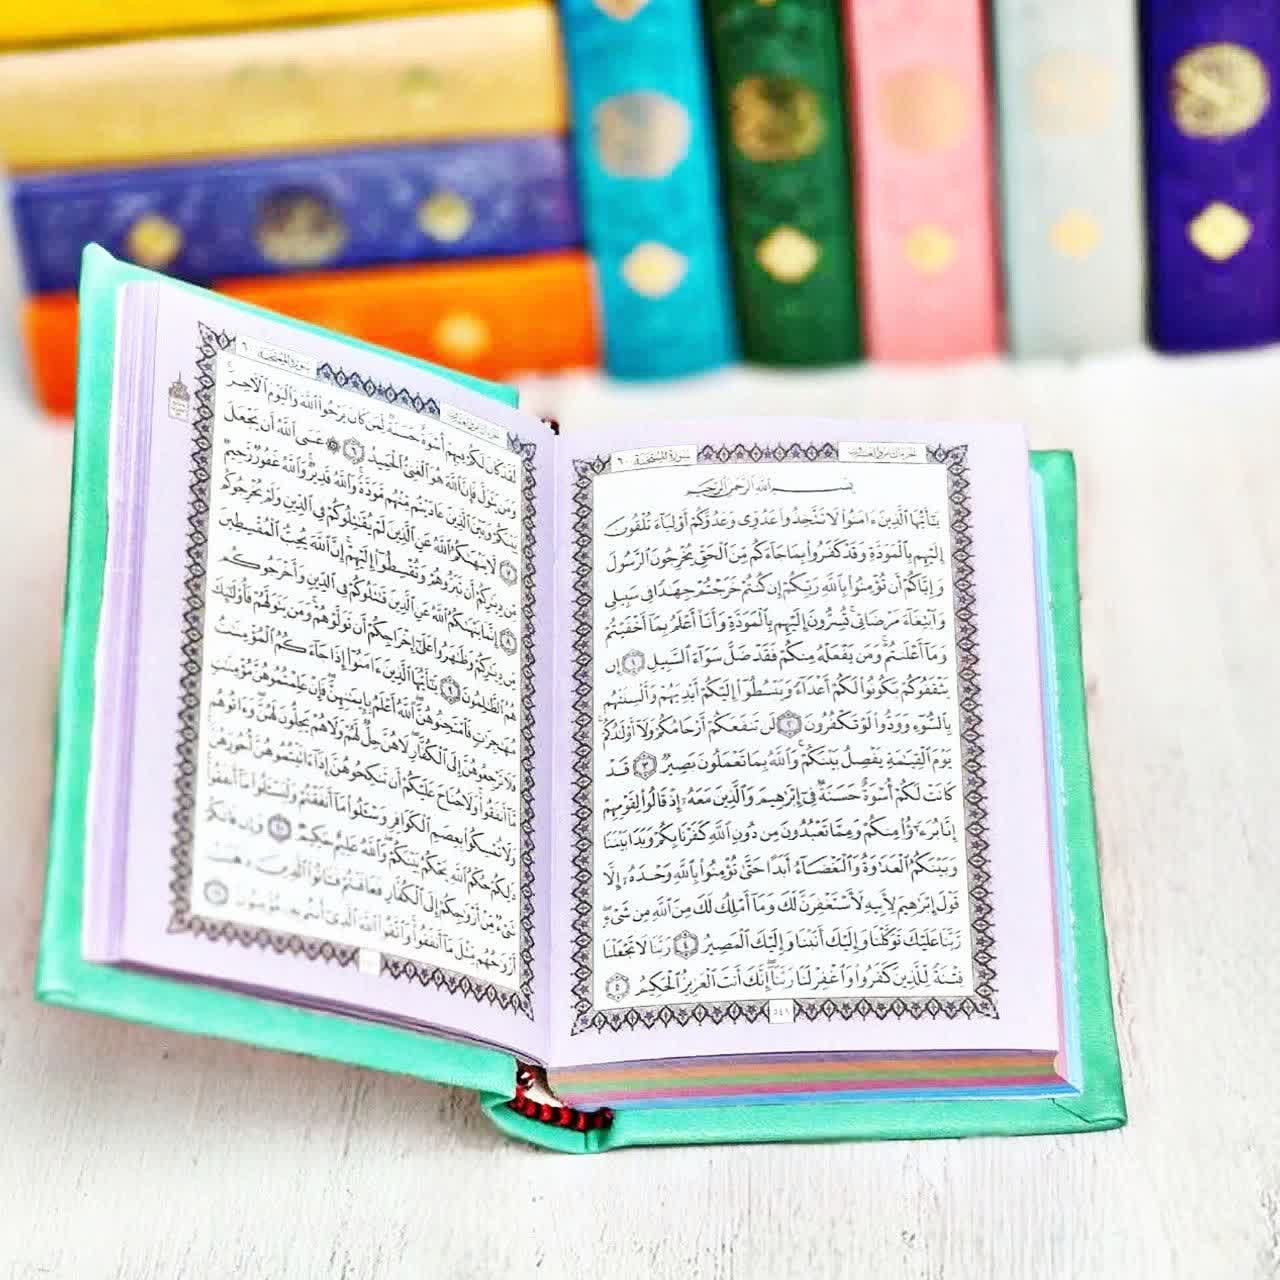 سورة الممتحنة ٦٠
الجزء الثامن والعشرون
بِسْمِ اللَّهِ الرَّحْمَٰنِ الرَّحِيمِ
يَا أَيُّهَا الَّذِينَ ءَامَنُوا لَا تَتَّخِذُوا عَدُوِّي وَعَدُوَّكُمْ أَوْلِيَاءَ تُلْقُونَ
إِلَيْهِم بِالْمَوَدَّةِ وَقَدْ كَفَرُوا بِمَا جَاءَكُم مِّنَ الْحَقِّ يُخْرِجُونَ الرَّسُولَ
وَإِيَّاكُمْ أَن تُؤْمِنُوا بِاللَّهِ رَبِّكُمْ إِن كُنتُمْ خَرَجْتُمْ جِهَادًا فِي سَبِيلِي
وَابْتِغَاءَ مَرْضَاتِي تُسِرُّونَ إِلَيْهِم بِالْمَوَدَّةِ وَأَنَا أَعْلَمُ بِمَا أَخْفَيْتُمْ
وَمَا أَعْلَنتُمْ وَمَن يَفْعَلْهُ مِنكُمْ فَقَدْ ضَلَّ سَوَاءَ السَّبِيلِ ١ إِن
يَثْقَفُوكُمْ يَكُونُوا لَكُمْ أَعْدَاءً وَيَبْسُطُوا إِلَيْكُمْ أَيْدِيَهُمْ وَأَلْسِنَتَهُم
بِالسُّوءِ وَوَدُّوا لَوْ تَكْفُرُونَ ٢ لَن تَنفَعَكُمْ أَرْحَامُكُمْ وَلَا أَوْلَادُكُمْ
يَوْمَ الْقِيَامَةِ يَفْصِلُ بَيْنَكُمْ وَاللَّهُ بِمَا تَعْمَلُونَ بَصِيرٌ ٣ قَدْ
كَانَتْ لَكُمْ أُسْوَةٌ حَسَنَةٌ فِي إِبْرَاهِيمَ وَالَّذِينَ مَعَهُ إِذْ قَالُوا لِقَوْمِهِمْ
إِنَّا بُرَءَاؤُا مِنكُمْ وَمِمَّا تَعْبُدُونَ مِن دُونِ اللَّهِ كَفَرْنَا بِكُمْ وَبَدَا بَيْنَنَا
وَبَيْنَكُمُ الْعَدَاوَةُ وَالْبَغْضَاءُ أَبَدًا حَتَّىٰ تُؤْمِنُوا بِاللَّهِ وَحْدَهُ إِلَّا
قَوْلَ إِبْرَاهِيمَ لِأَبِيهِ لَأَسْتَغْفِرَنَّ لَكَ وَمَا أَمْلِكُ لَكَ مِنَ اللَّهِ مِن شَيْءٍ
رَّبَّنَا عَلَيْكَ تَوَكَّلْنَا وَإِلَيْكَ أَنَبْنَا وَإِلَيْكَ الْمَصِيرُ ٤ رَبَّنَا لَا تَجْعَلْنَا
فِتْنَةً لِّلَّذِينَ كَفَرُوا وَاغْفِرْ لَنَا رَبَّنَا إِنَّكَ أَنتَ الْعَزِيزُ الْحَكِيمُ ٥
٥٤٩
سورة الممتحنة ٦٠
الجزء الثامن والعشرون
لَقَدْ كَانَ لَكُمْ فِيهِمْ أُسْوَةٌ حَسَنَةٌ لِّمَن كَانَ يَرْجُوا اللَّهَ وَالْيَوْمَ الْآخِرَ
وَمَن يَتَوَلَّ فَإِنَّ اللَّهَ هُوَ الْغَنِيُّ الْحَمِيدُ ٦ عَسَى اللَّهُ أَن يَجْعَلَ
بَيْنَكُمْ وَبَيْنَ الَّذِينَ عَادَيْتُم مِّنْهُم مَّوَدَّةً وَاللَّهُ قَدِيرٌ وَاللَّهُ غَفُورٌ رَّحِيمٌ
٧ لَّا يَنْهَاكُمُ اللَّهُ عَنِ الَّذِينَ لَمْ يُقَاتِلُوكُمْ فِي الدِّينِ وَلَمْ يُخْرِجُوكُم
مِّن دِيَارِكُمْ أَن تَبَرُّوهُمْ وَتُقْسِطُوا إِلَيْهِمْ إِنَّ اللَّهَ يُحِبُّ الْمُقْسِطِينَ
٨ إِنَّمَا يَنْهَاكُمُ اللَّهُ عَنِ الَّذِينَ قَاتَلُوكُمْ فِي الدِّينِ وَأَخْرَجُوكُم
مِّن دِيَارِكُمْ وَظَاهَرُوا عَلَىٰ إِخْرَاجِكُمْ أَن تَوَلَّوْهُمْ وَمَن يَتَوَلَّهُمْ فَأُولَٰئِكَ
هُمُ الظَّالِمُونَ ٩ يَا أَيُّهَا الَّذِينَ ءَامَنُوا إِذَا جَاءَكُمُ الْمُؤْمِنَاتُ
مُهَاجِرَاتٍ فَامْتَحِنُوهُنَّ اللَّهُ أَعْلَمُ بِإِيمَانِهِنَّ فَإِنْ عَلِمْتُمُوهُنَّ مُؤْمِنَاتٍ
فَلَا تَرْجِعُوهُنَّ إِلَى الْكُفَّارِ لَا هُنَّ حِلٌّ لَّهُمْ وَلَا هُمْ يَحِلُّونَ لَهُنَّ وَءَاتُوهُم
مَّا أَنفَقُوا وَلَا جُنَاحَ عَلَيْكُمْ أَن تَنكِحُوهُنَّ إِذَا ءَاتَيْتُمُوهُنَّ أُجُورَهُنَّ
وَلَا تُمْسِكُوا بِعِصَمِ الْكَوَافِرِ وَسْئَلُوا مَا أَنفَقْتُمْ وَلْيَسْئَلُوا مَا أَنفَقُوا
ذَٰلِكُمْ حُكْمُ اللَّهِ يَحْكُمُ بَيْنَكُمْ وَاللَّهُ عَلِيمٌ حَكِيمٌ ١٠ وَإِن فَاتَكُمْ
شَيْءٌ مِّنْ أَزْوَاجِكُمْ إِلَى الْكُفَّارِ فَعَاقَبْتُمْ فَآتُوا الَّذِينَ ذَهَبَتْ
أَزْوَاجُهُم مِّثْلَ مَا أَنفَقُوا وَاتَّقُوا اللَّهَ الَّذِي أَنتُم بِهِ مُؤْمِنُونَ ١١